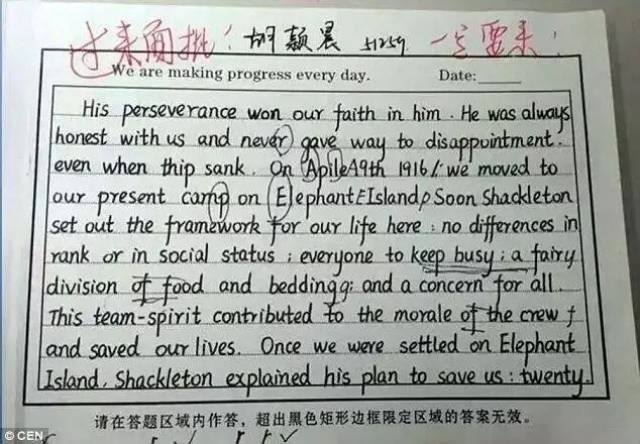 过来面批! 胡颖晨 51259 一定要来!
We are making progress every day. Date:
His perseverance won our faith in him. He was always
honest with us and never gave way to disappointment.
even when thip sank. On ApileA9th 1916/: we moved to
our present camp on ElephantEIsland, Soon Shackleton
set out the framework for our life here: no differences in
rank or in social status; everyone to keep busy; a fairy
division of food and beddingg; and a concern for all.
This team-spirit contributed to the morale of the crew f
and saved our lives. Once we were settled on Elephant
Island, Shackleton explained his plan to save us: twenty.
请在答题区域内作答,超出黑色矩形边框限定区域的答案无效。
© CEN